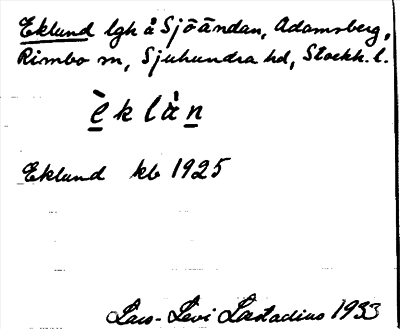 Eklund lgh å Sjöändan, Adamsberg,
Rimbo sn, Sjuhundra hd, Stockh. l.
èklàn
Eklund kb 1925
Lars-Levi Læstadius 1933